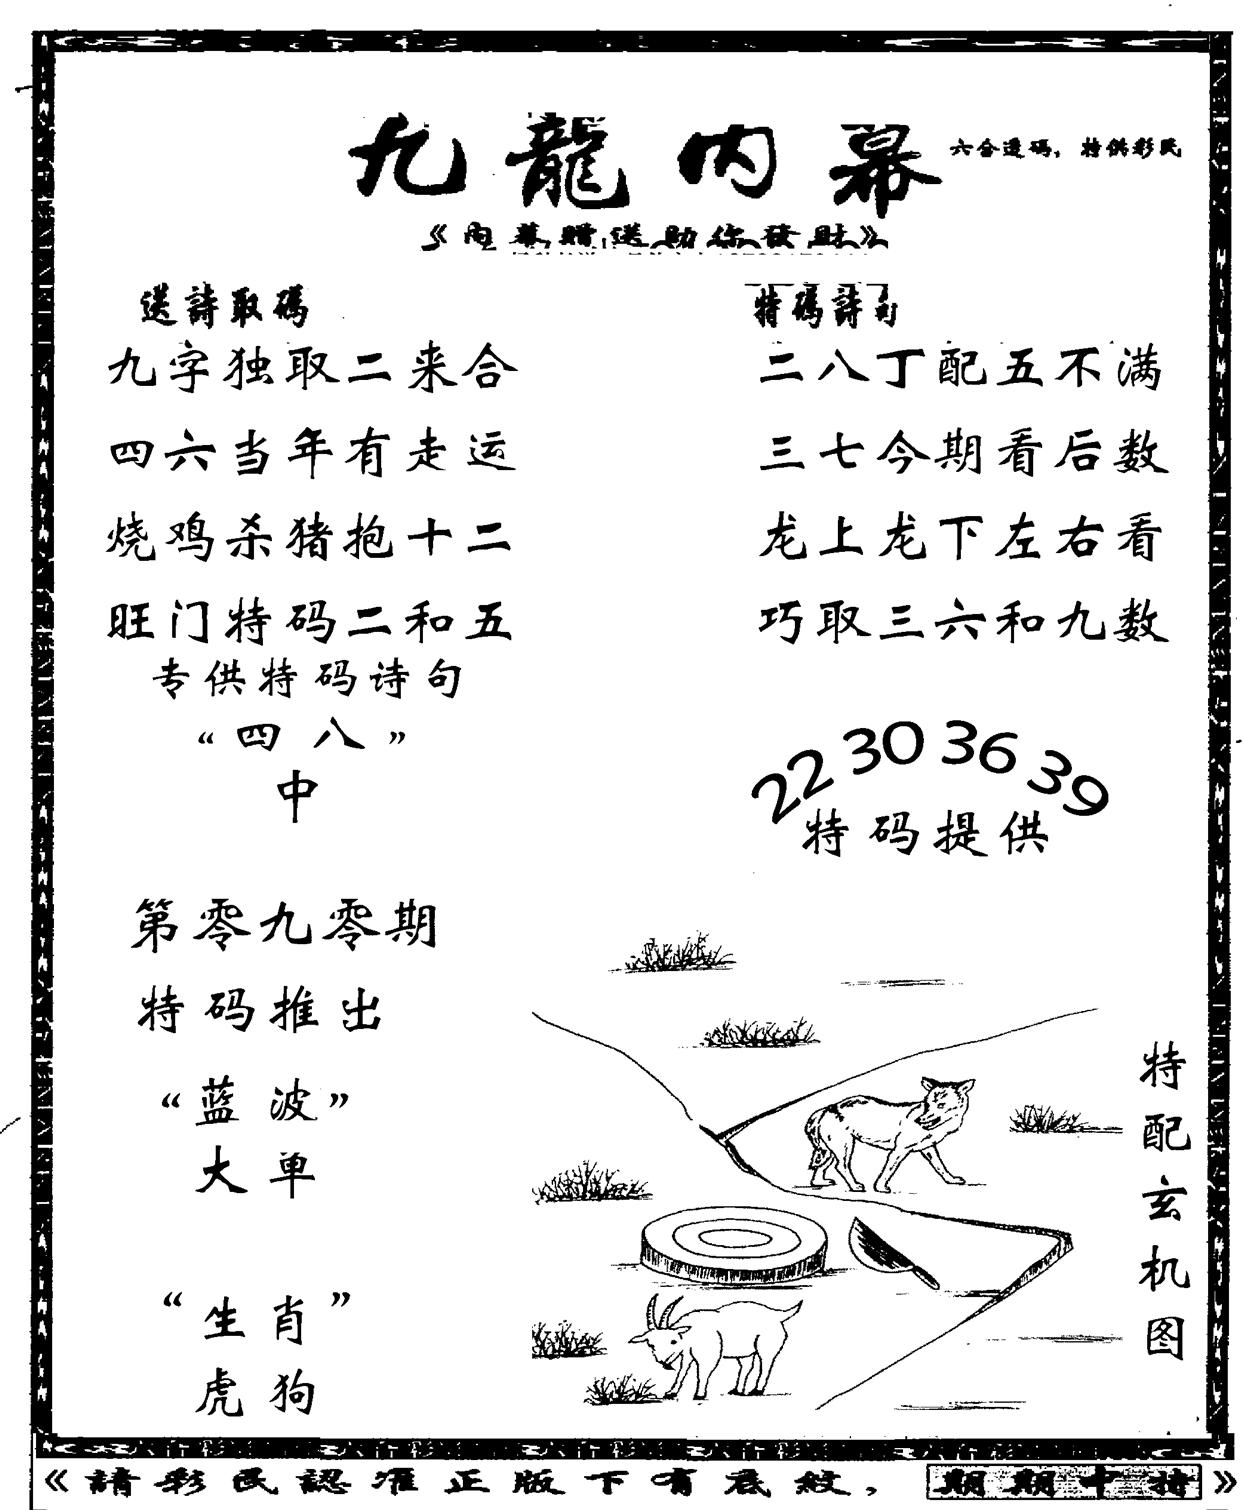 九龍内幕
六合透码，特供彩民
《内幕赠送助你發财》
送詩取碼
九字独取二来合
四六当年有走运
烧鸡杀猪抱十二
旺门特码二和五
专供特码诗句
“四八”
中
特碼詩句
二八丁配五不满
三七今期看后数
龙上龙下左右看
巧取三六和九数
22 30 36 39
特码提供
第零九零期
特码推出
“蓝波”
大单
“生肖”
虎狗
特配玄机图
《請彩民認准正版下有底紋，期期中特》